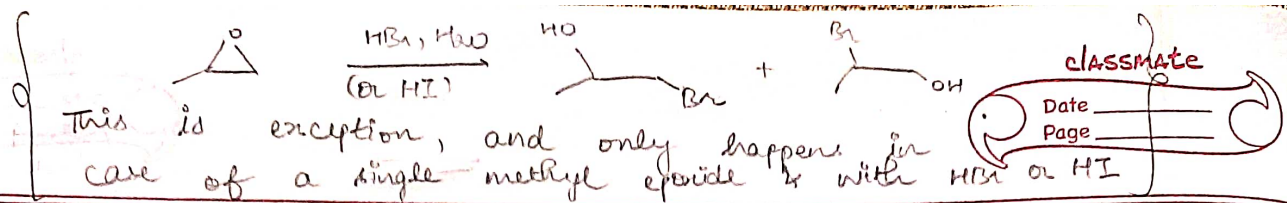 O HBr, H2O HO Br
(or HI) + OH
Br
classmate
Date
Page
This is exception, and only happens in
case of a single methyl epoxide & with HBr or HI